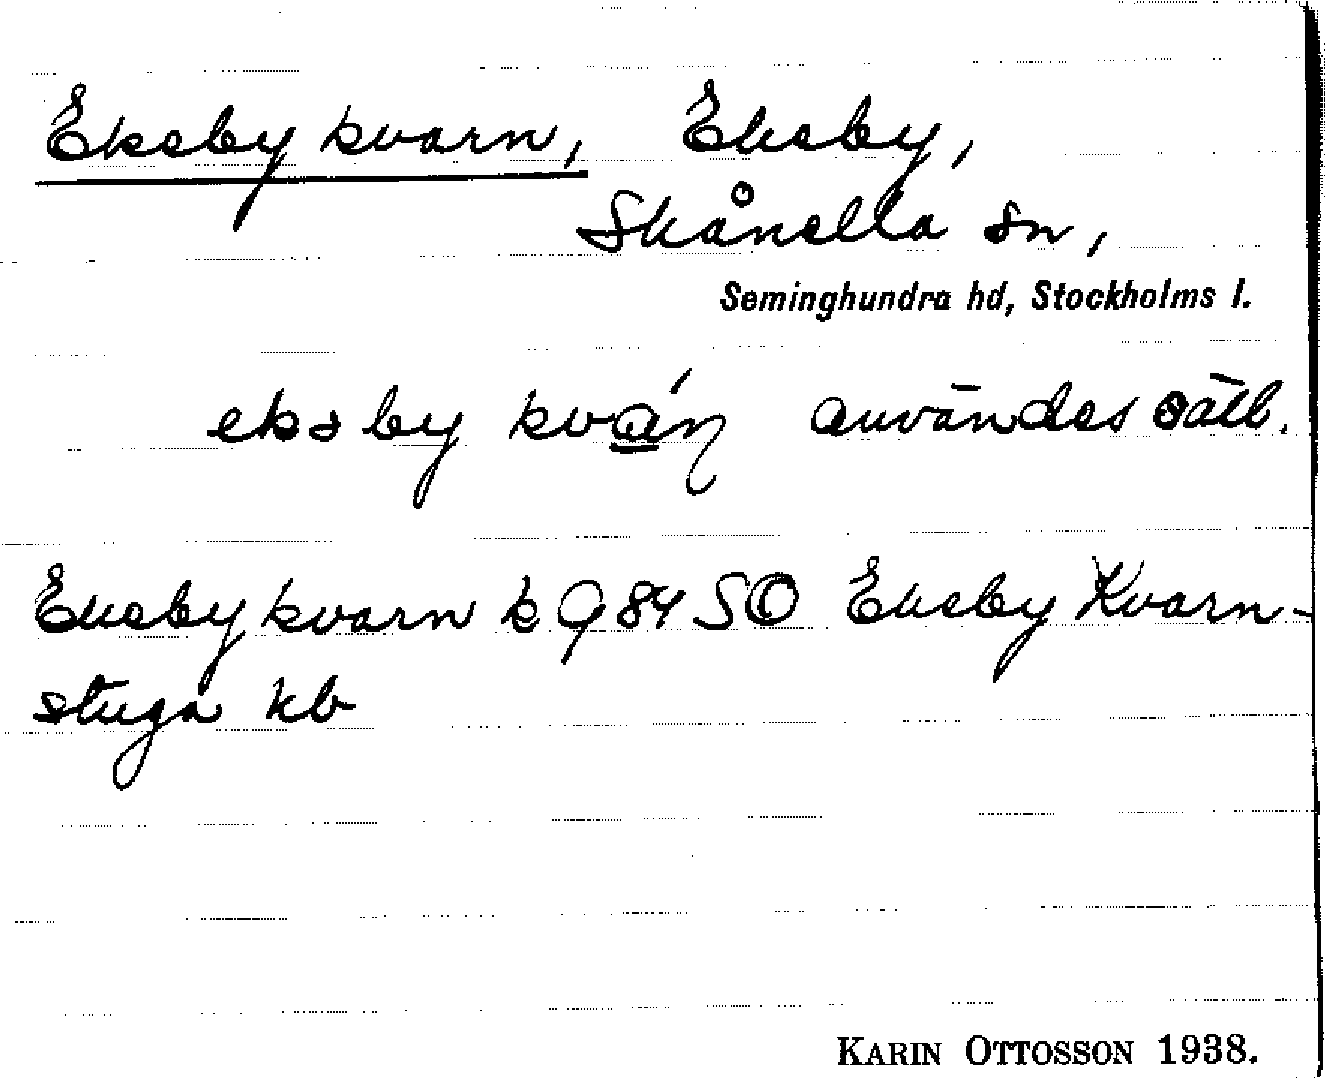 Eksby kvarn, Eksby,
Skånella sn,
Seminghundra hd, Stockholms l.
eksby kván användes sälb.
Eksby kvarn k 984 SO Eksby Kvarn-
stuga kb
KARIN OTTOSSON 1938.